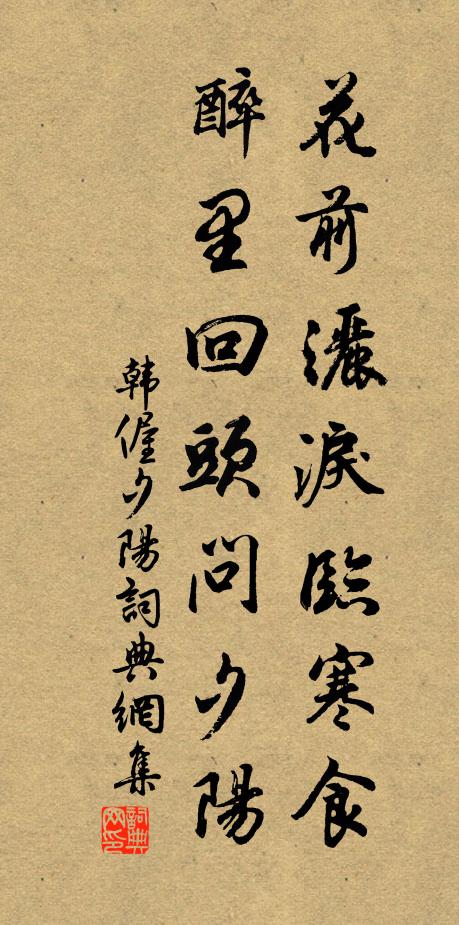 花前灑淚臨寒食
醉里回頭問夕陽
韩偓夕陽詞典網集
詞典网印